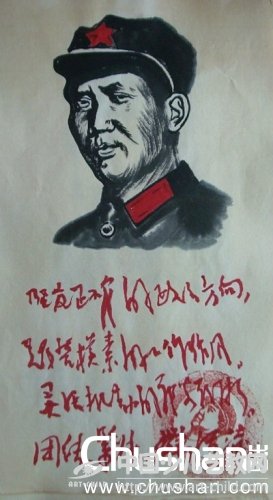 坚定正确的政治方向,
艰苦朴素的工作作风,
灵活机动的战略战术
团结 紧张 严肃 活泼
Chushan
www.chushan.com